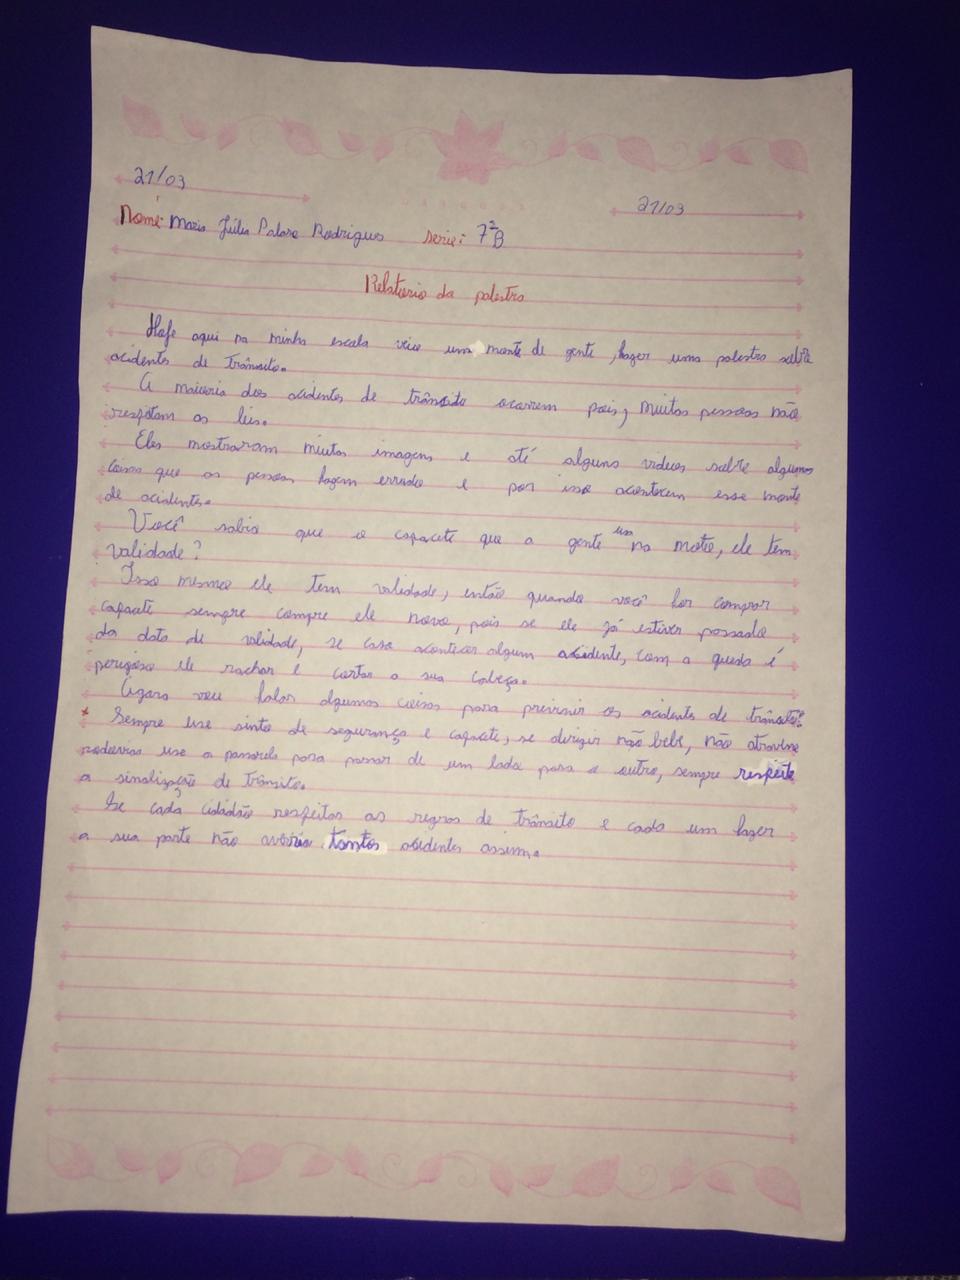 21/03
21/03
Nome: Maria Júlia Rodrigues serie: 7ªB
Relatorio da palestra
Hoje aqui na minha escola veio um monte de gente fazer uma palestra sobre
acidentes de Trânsito.
A maioria dos acidentes de trânsito ocorrem pois, muitas pessoas não
respeitam as leis.
Eles mostraram muitas imagens e até alguns videos sobre algumas
coisas que as pessoas fazem errado e por isso acontecem esse monte
de acidentes.
Você sabia que o capacete que a gente usa na moto, ele tem
validade?
Isso mesmo ele tem validade, então quando você for comprar
capacete sempre compre ele novo, pois se ele já estiver passado
da data de validade, se caso acontecer algum acidente, com a queda é
perigoso ele rachar e cortar a sua cabeça.
Agora vou falar algumas coisas para previnir os acidentes de trânsito:
* Sempre use sinto de segurança e capacete, se dirigir não beba, não atravesse
rodovias use a passarela para passar de um lado para o outro, sempre respeite
a sinalização de trânsito.
Se cada cidadão respeitar as regras de trânsito e cada um fazer
a sua parte não tantos acidentes assim.